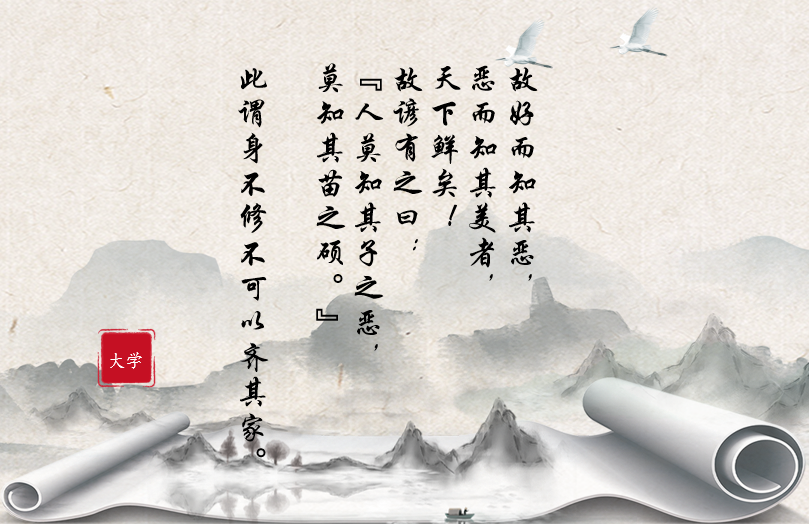 故好而知其恶，
恶而知其美者，
天下鲜矣！
故谚有之曰：
『人莫知其子之恶，
莫知其苗之硕。』
此谓身不修不可以齐其家。
大学